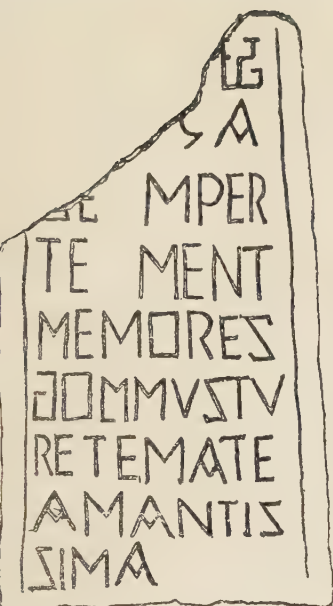 SA
SE MPER
TE MENT
MEMORES
GOMMVSTV
RETEMATE
AMANTIS
SIMA